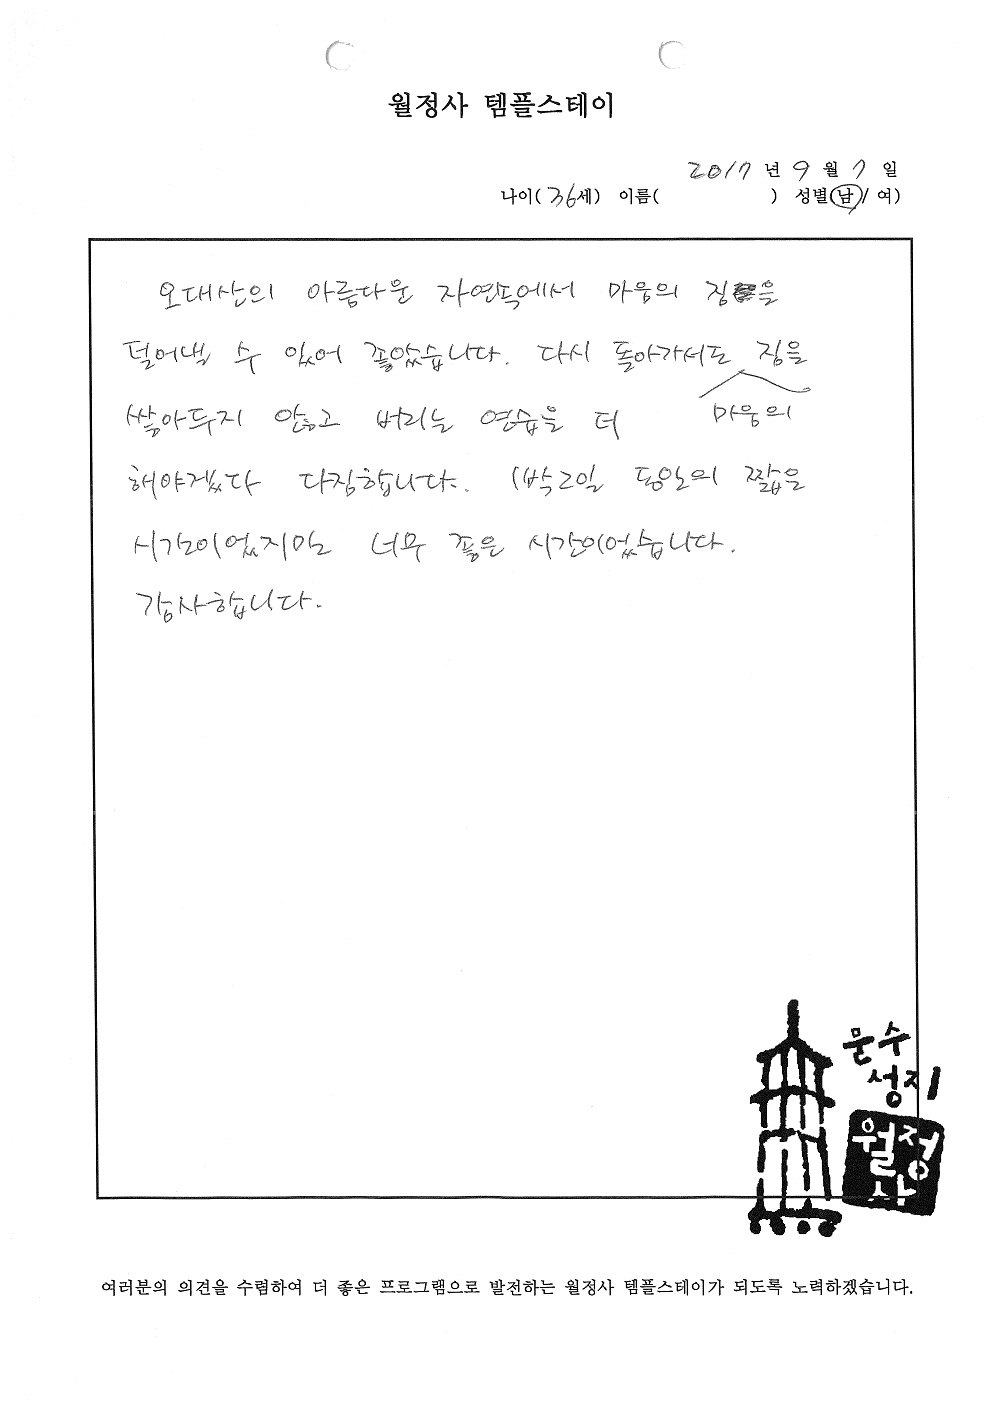 월정사 템플스테이
2017년 9월 7일
나이(36세) 이름( ) 성별(남/여)
오대산의 아름다운 자연속에서 마음의 짐을
덜어낼 수 있어 좋았습니다. 다시 돌아가서도 짐을
마음의
쌓아두지 않고 버리는 연습을 더
해야겠다 다짐합니다. 1박2일 동안의 짧은
시간이었지만 너무 좋은 시간이었습니다.
감사합니다.
문수
성지
월정
사
여러분의 의견을 수렴하여 더 좋은 프로그램으로 발전하는 월정사 템플스테이가 되도록 노력하겠습니다.